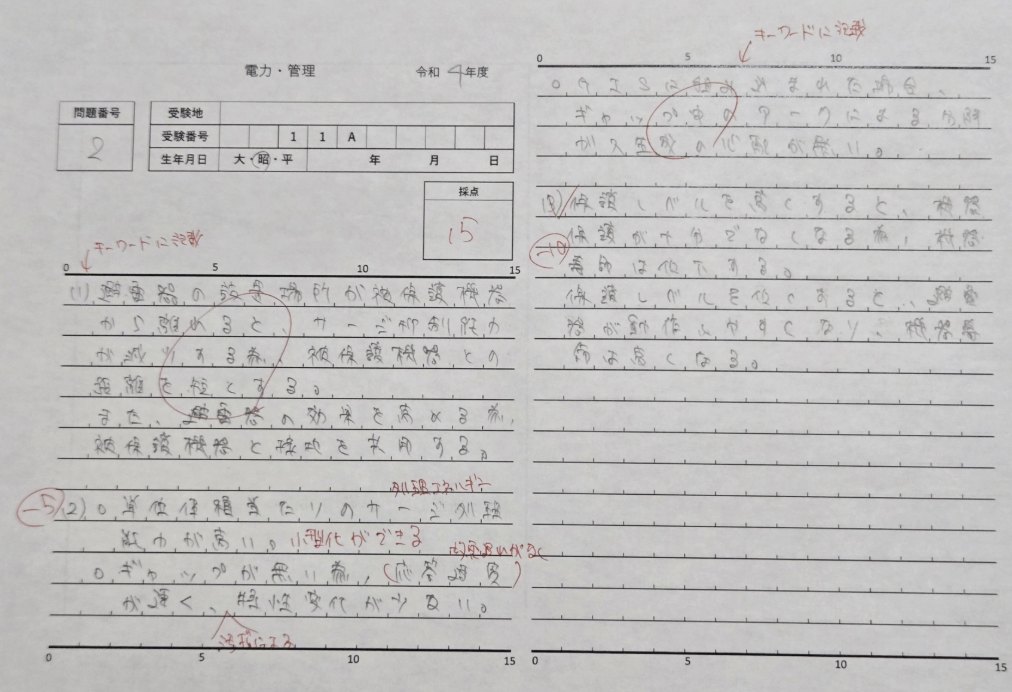 電力・管理
令和 4年度
問題番号
2
受験地
受験番号 1 1 A
生年月日 大・昭・平 年 月 日
採点
15
キーワードに記載
0 5 10 15
(1) 避雷器の設置場所が被保護機器
から離れると、サージ抑制効力
が減少する為、被保護機器との
距離を短とする。
また、避雷器の効果を高める為、
被保護機器と接地を共用する。
処理エネルギー
-5
(2) ○単位体積当たりのサージ処理
能力が高い。小型化ができる
放電遅れがなく
○ギャップが無い為、(応答速度)
が速く、特性変化が少ない。
0 5 10 15
キーワードに記載
0 5 10 15
○GISに組み込まれた場合、
ギャップ中のアークによる分解
ガス生成の心配が無い。
-10
保護レベルを高くすると、機器
保護が十分でなくなる為、機器
寿命は低下する。
保護レベルを低くすると、避雷
器が動作しやすくなり、機器寿
命は高くなる。
0 5 10 15